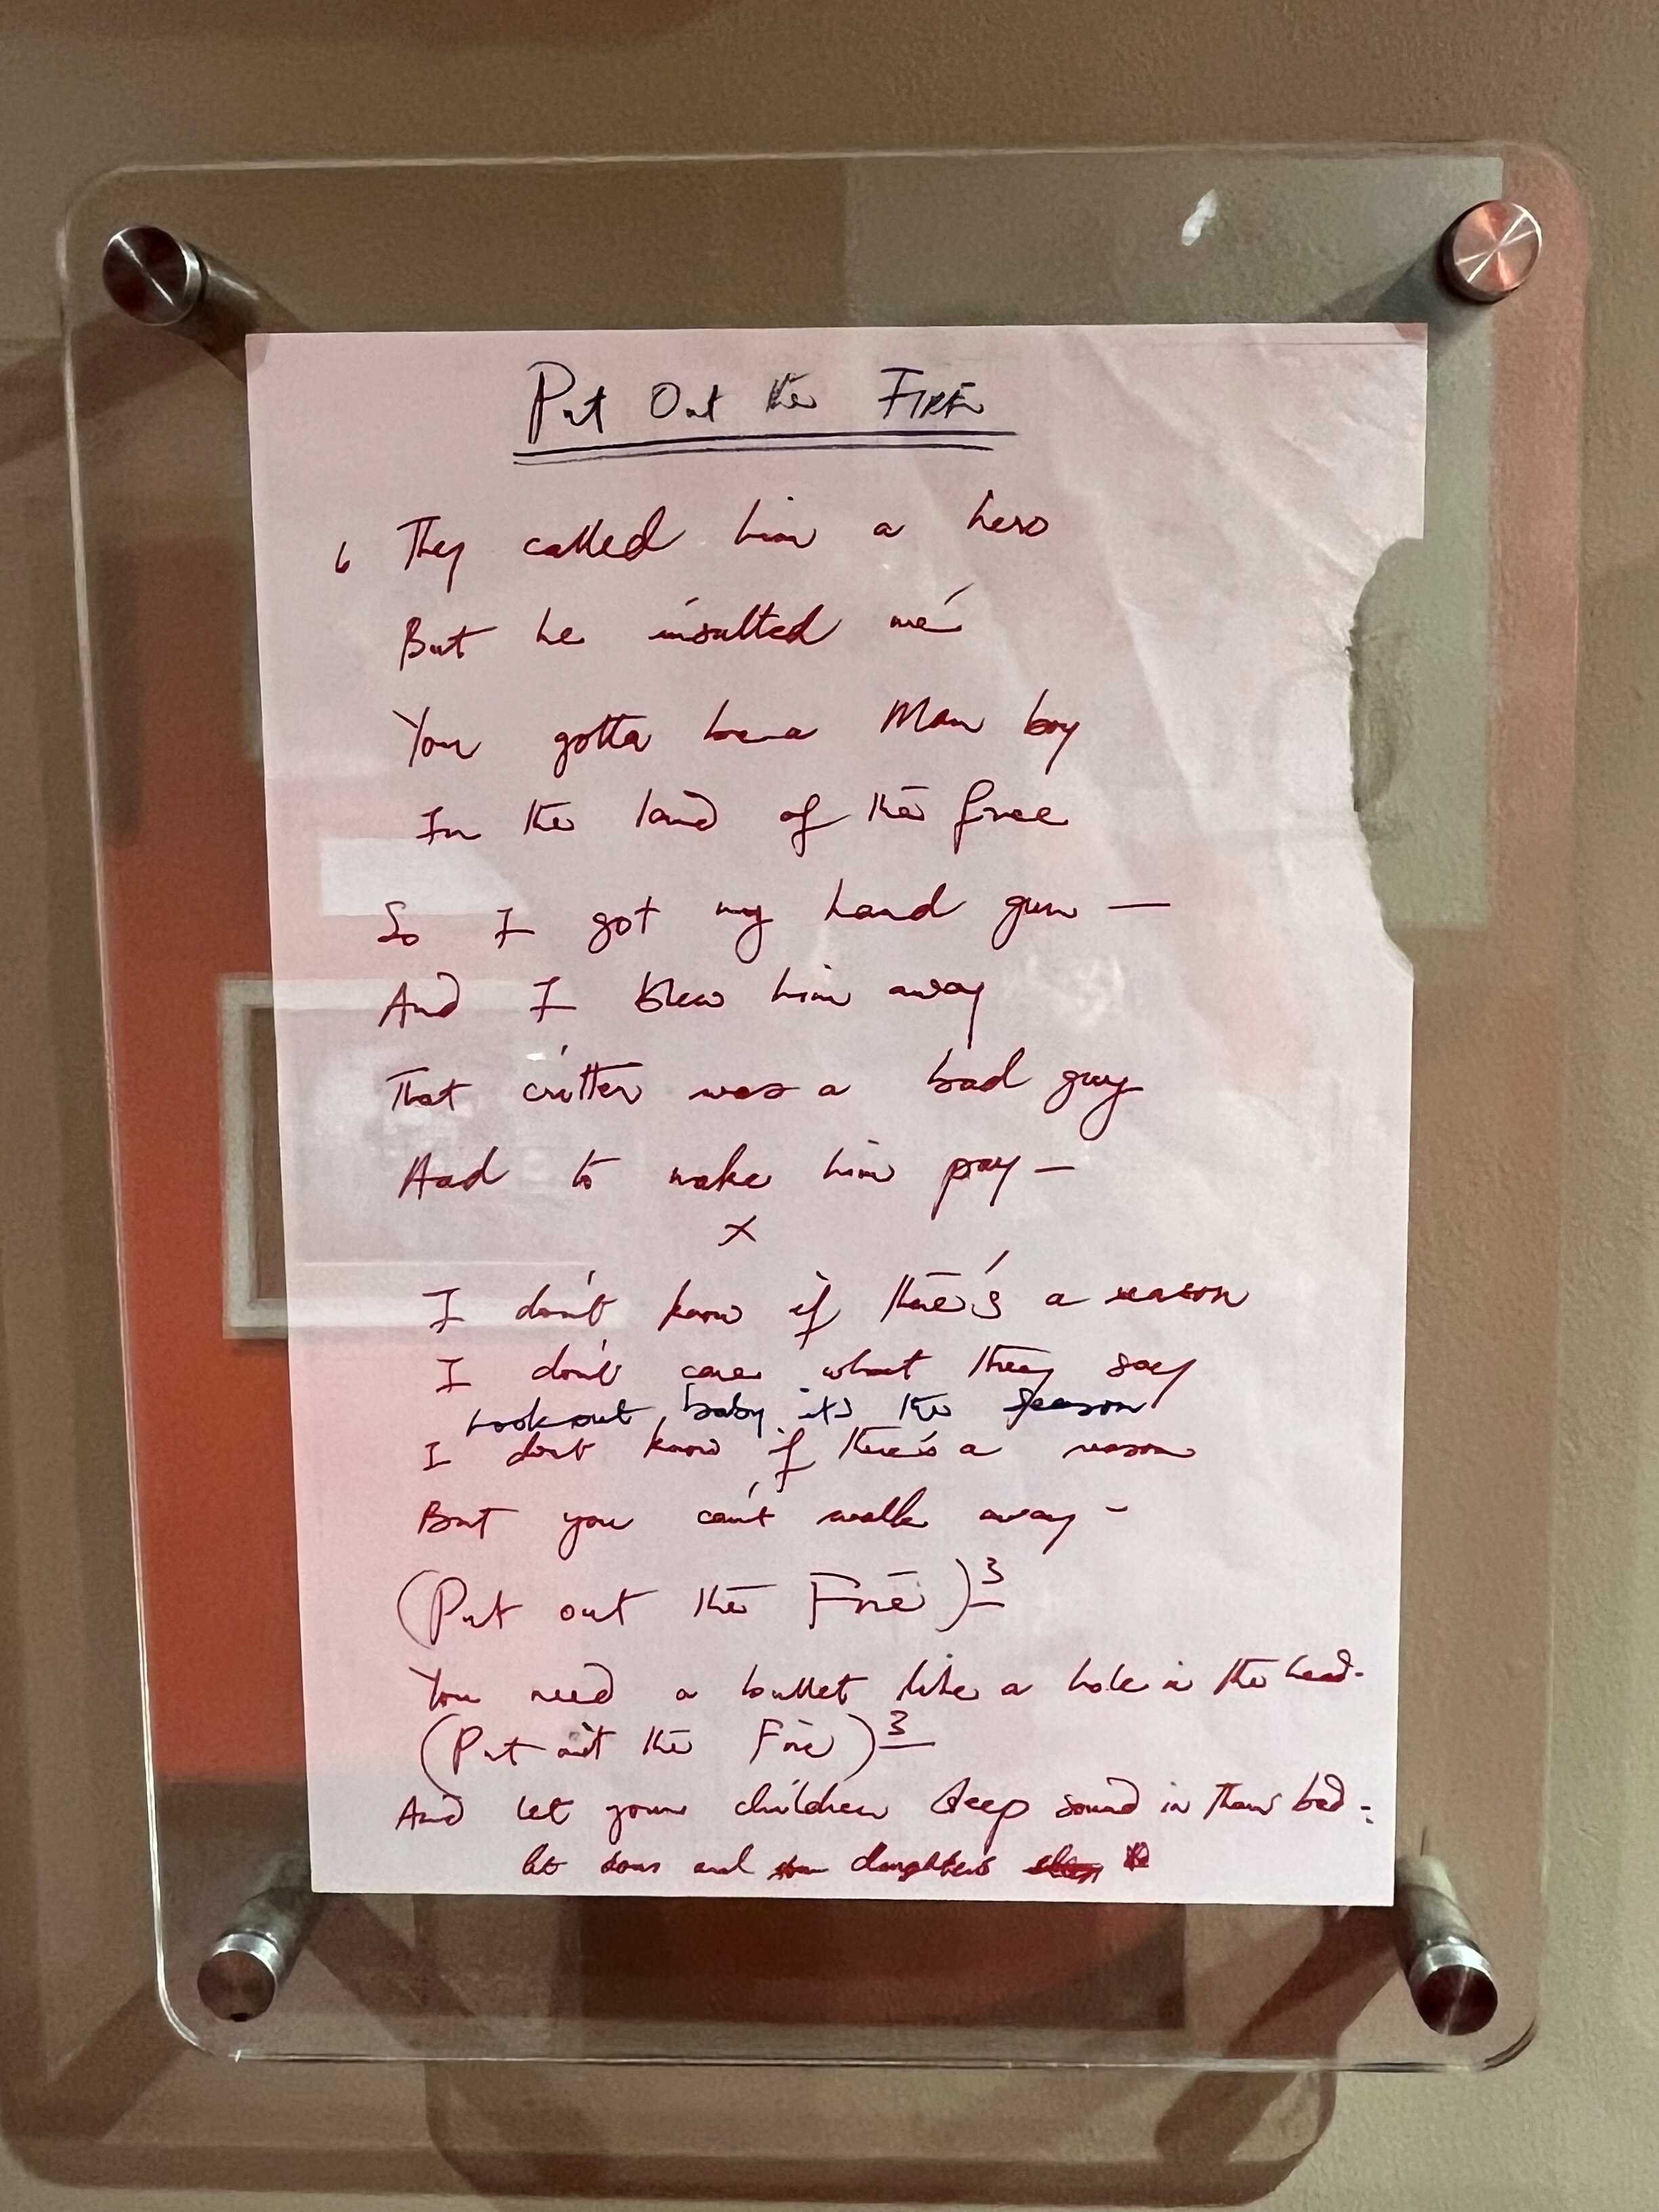 Put Out the FIRE
They called him a hero
But he insulted me
You gotta be a Man boy
In the land of the free
So I got my hand gun —
And I blew him away
That critter was a bad guy
Had to make him pay —
x
I don't know if there's a reason
I don't care what they say
Look out baby its the season
I don't know if there's a reason
But you can't walk away -
(Put out the Fire)3
You need a bullet like a hole in the head-
(Put out the Fire)3
And let your children sleep sound in their bed-
let sons and daughters